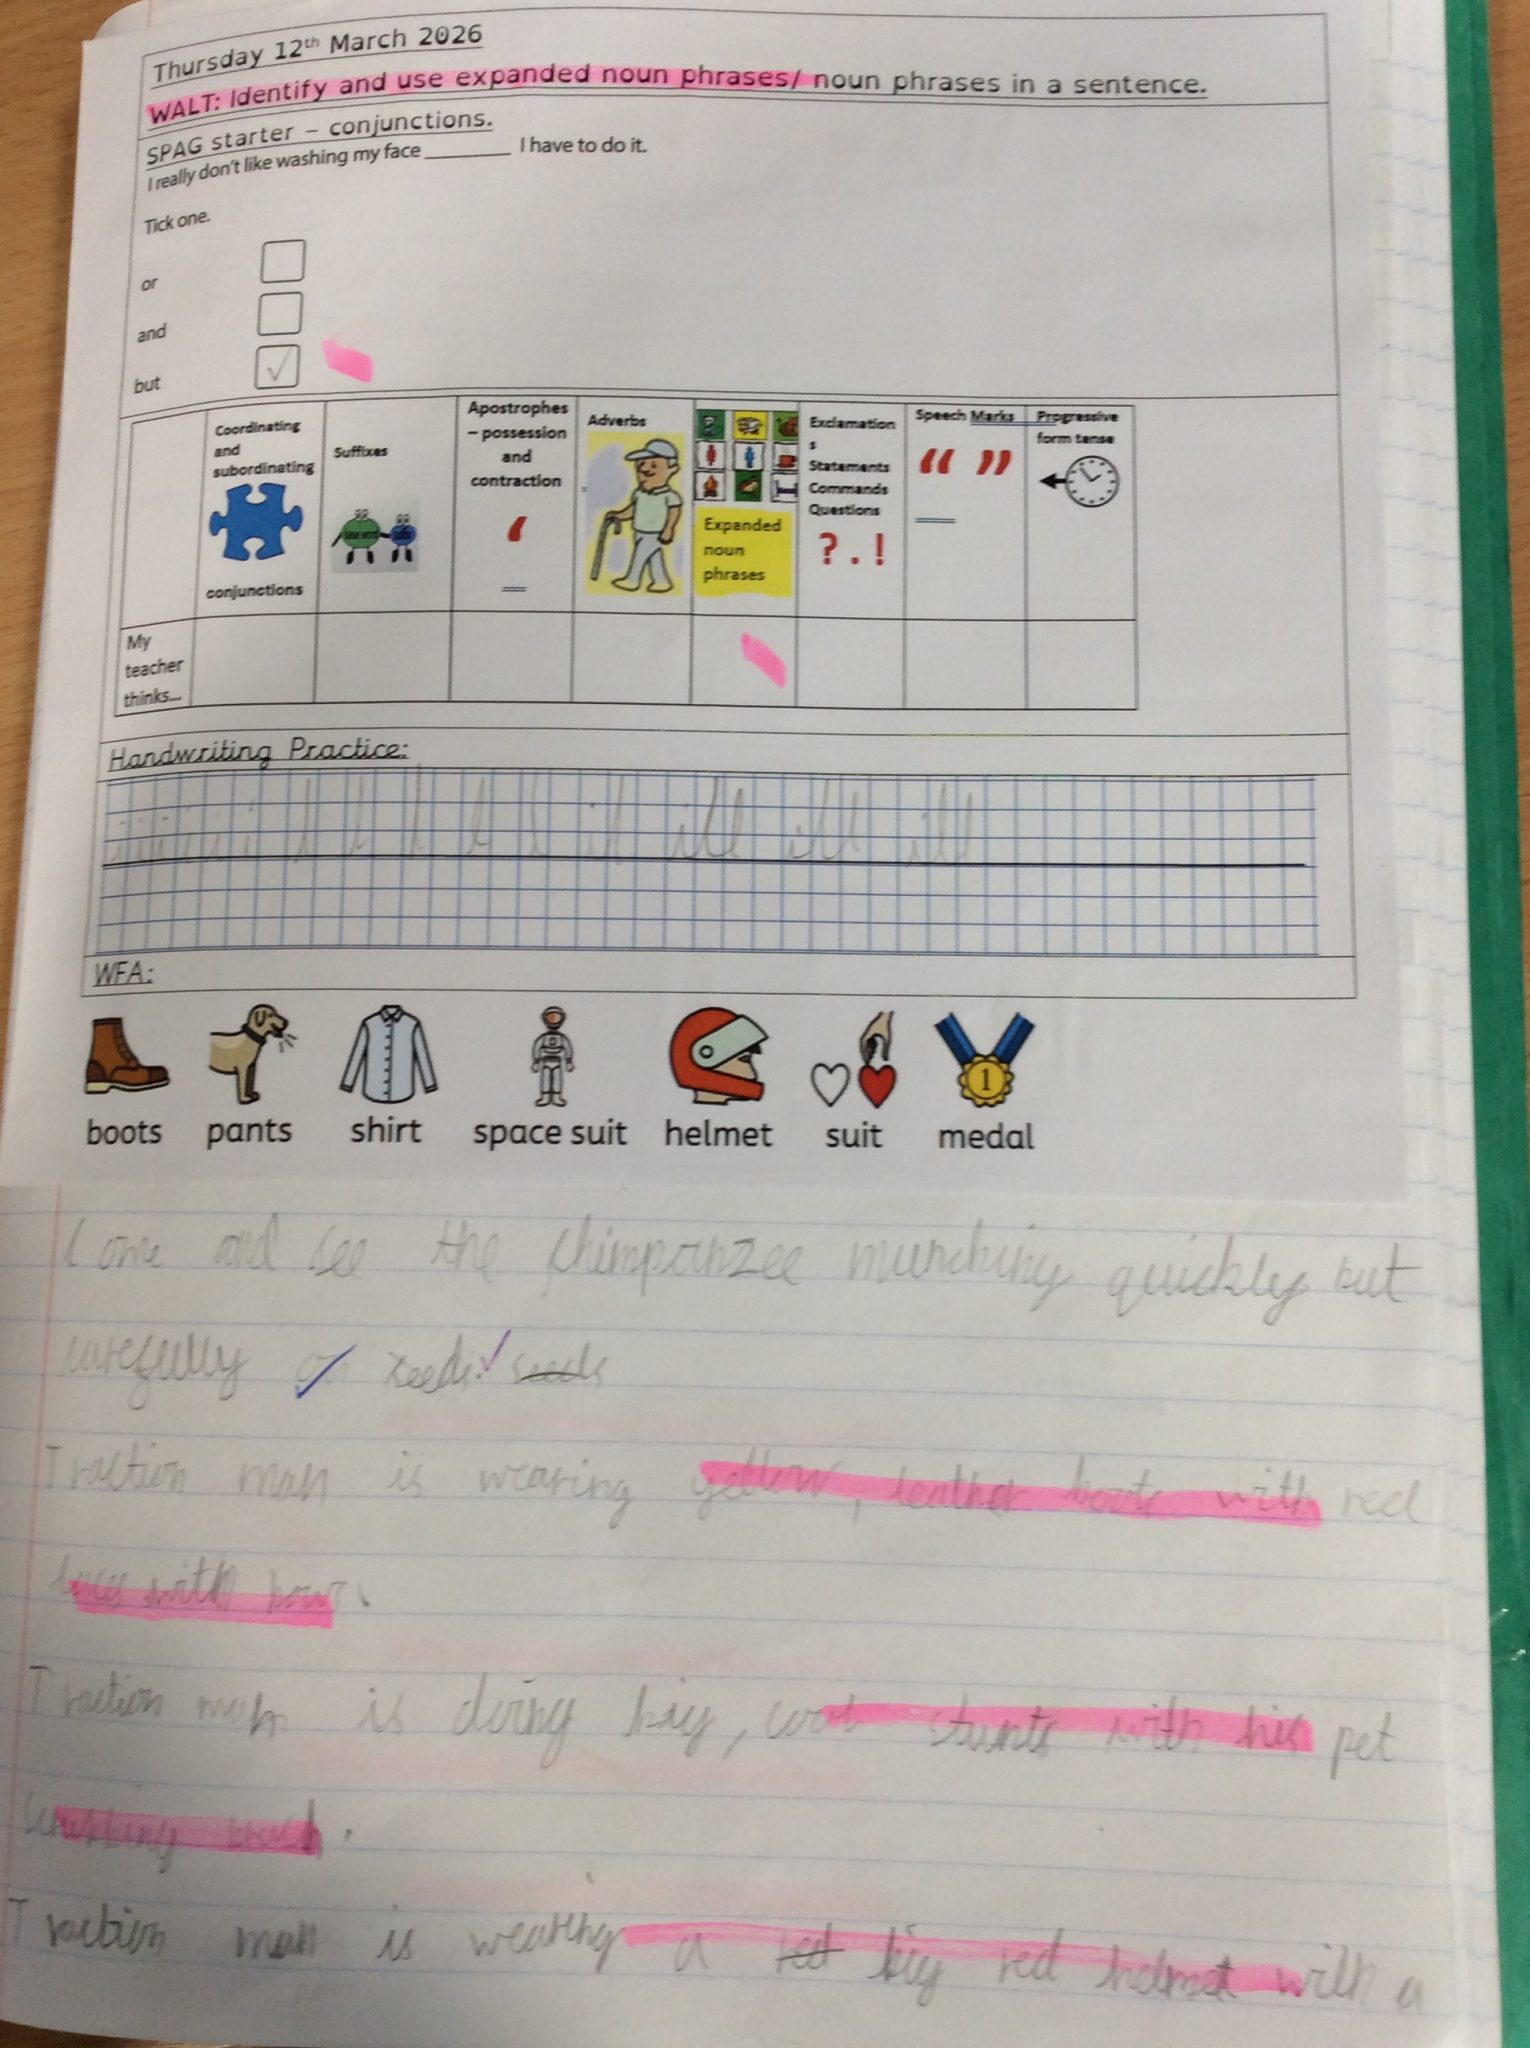 Thursday 12th March 2026
WALT: Identify and use expanded noun phrases/ noun phrases in a sentence.
SPAG starter – conjunctions.
I really don't like washing my face ________ I have to do it.
Tick one.
or
and
but ✓
Coordinating and subordinating conjunctions
Suffixes
Apostrophes – possession and contraction
Adverbs
Expanded noun phrases
Exclamations Statements Commands Questions
? . !
Speech Marks
“ ”
Progressive form tense
My teacher thinks...
Handwriting Practice:
i i i i i i l l l l l l il ill ill ill
WFA:
boots pants shirt space suit helmet suit medal
Come and see the chimpanzee munching quickly but
carefully on seeds. seeds
Traction man is wearing yellow, leather boots with red
laces with bows.
Traction man is doing big, cool stunts with his pet
scrubbing brush.
Traction man is wearing a red big red helmet with a